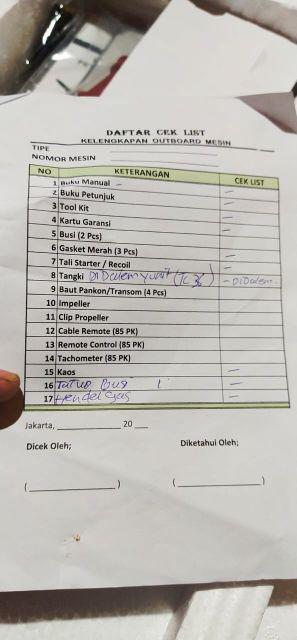 DAFTAR CEK LIST
KELENGKAPAN OUTBOARD MESIN
TIPE
NOMOR MESIN
NO KETERANGAN CEK LIST
1 Buku Manual –
2 Buku Petunjuk –
3 Tool Kit –
4 Kartu Garansi –
5 Busi (2 Pcs)
6 Gasket Merah (3 Pcs) –
7 Tali Starter / Recoil –
8 Tangki DiDalem (TC – DiDalem.
9 Baut Pankon/Transom (4 Pcs)
10 Impeller
11 Clip Propeller
12 Cable Remote (85 PK)
13 Remote Control (85 PK)
14 Tachometer (85 PK)
15 Kaos –
16 Tatup Busi 1 –
17 Hendel Gas –
Jakarta, ____________ 20 ___
Dicek Oleh; Diketahui Oleh;
(________________) (________________)